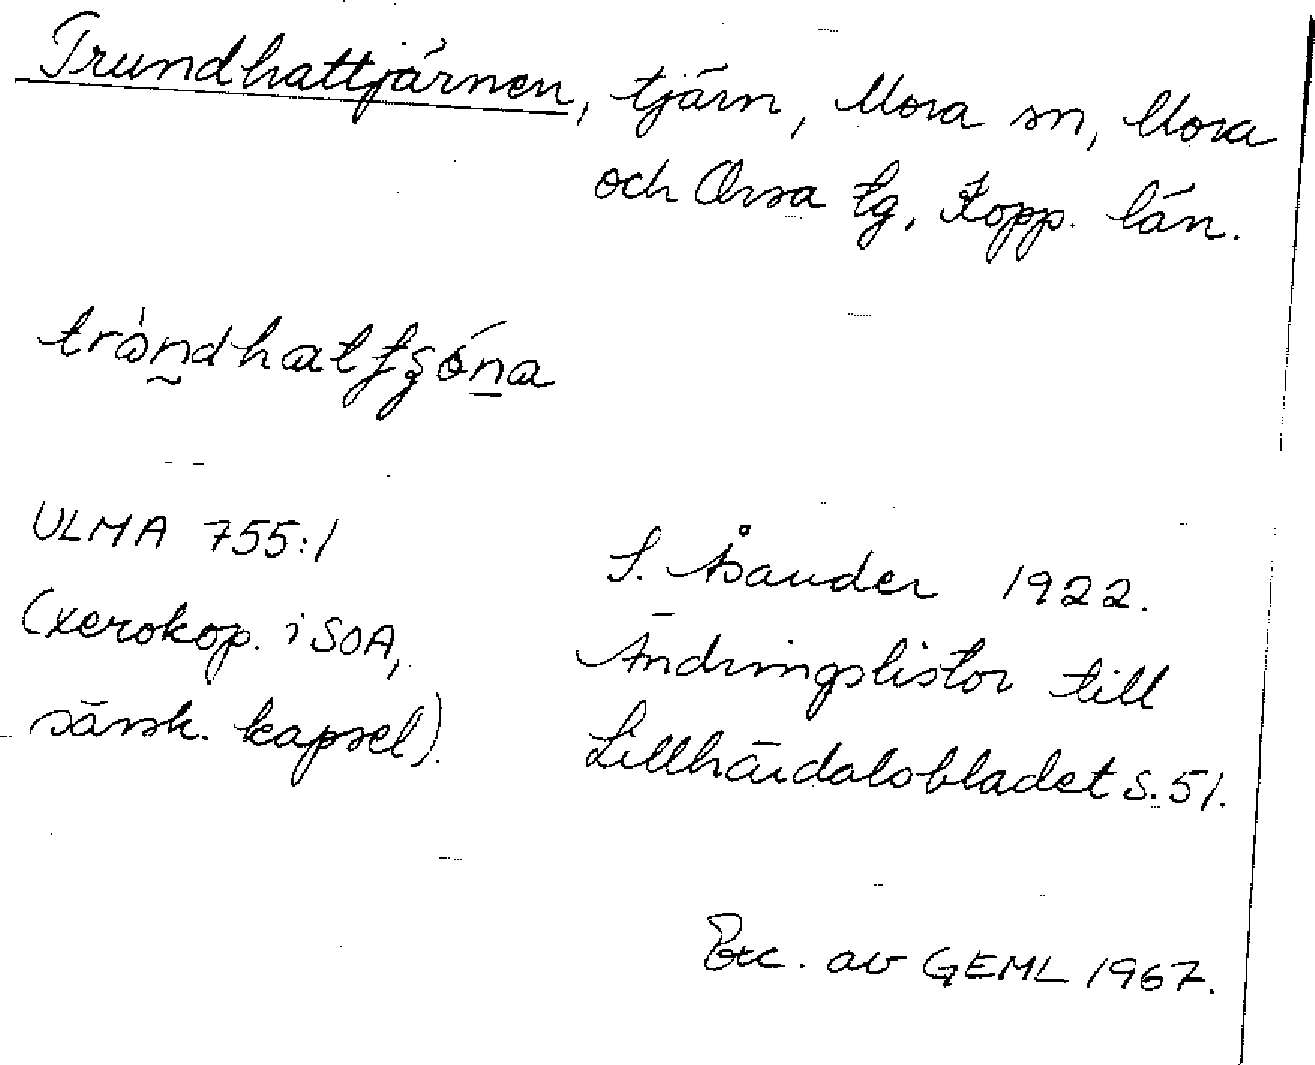 Trundhattjärnen, tjärn, Mora sn, Mora
och Orsa tg, Kopp. län.
ULMA 755:1
(xerokop. i SOA,
särsk. kapsel).
S. Åsander 1922.
Ändringslistor till
Lillhärdalsbladet s. 51.
Exc. av GEML 1967.